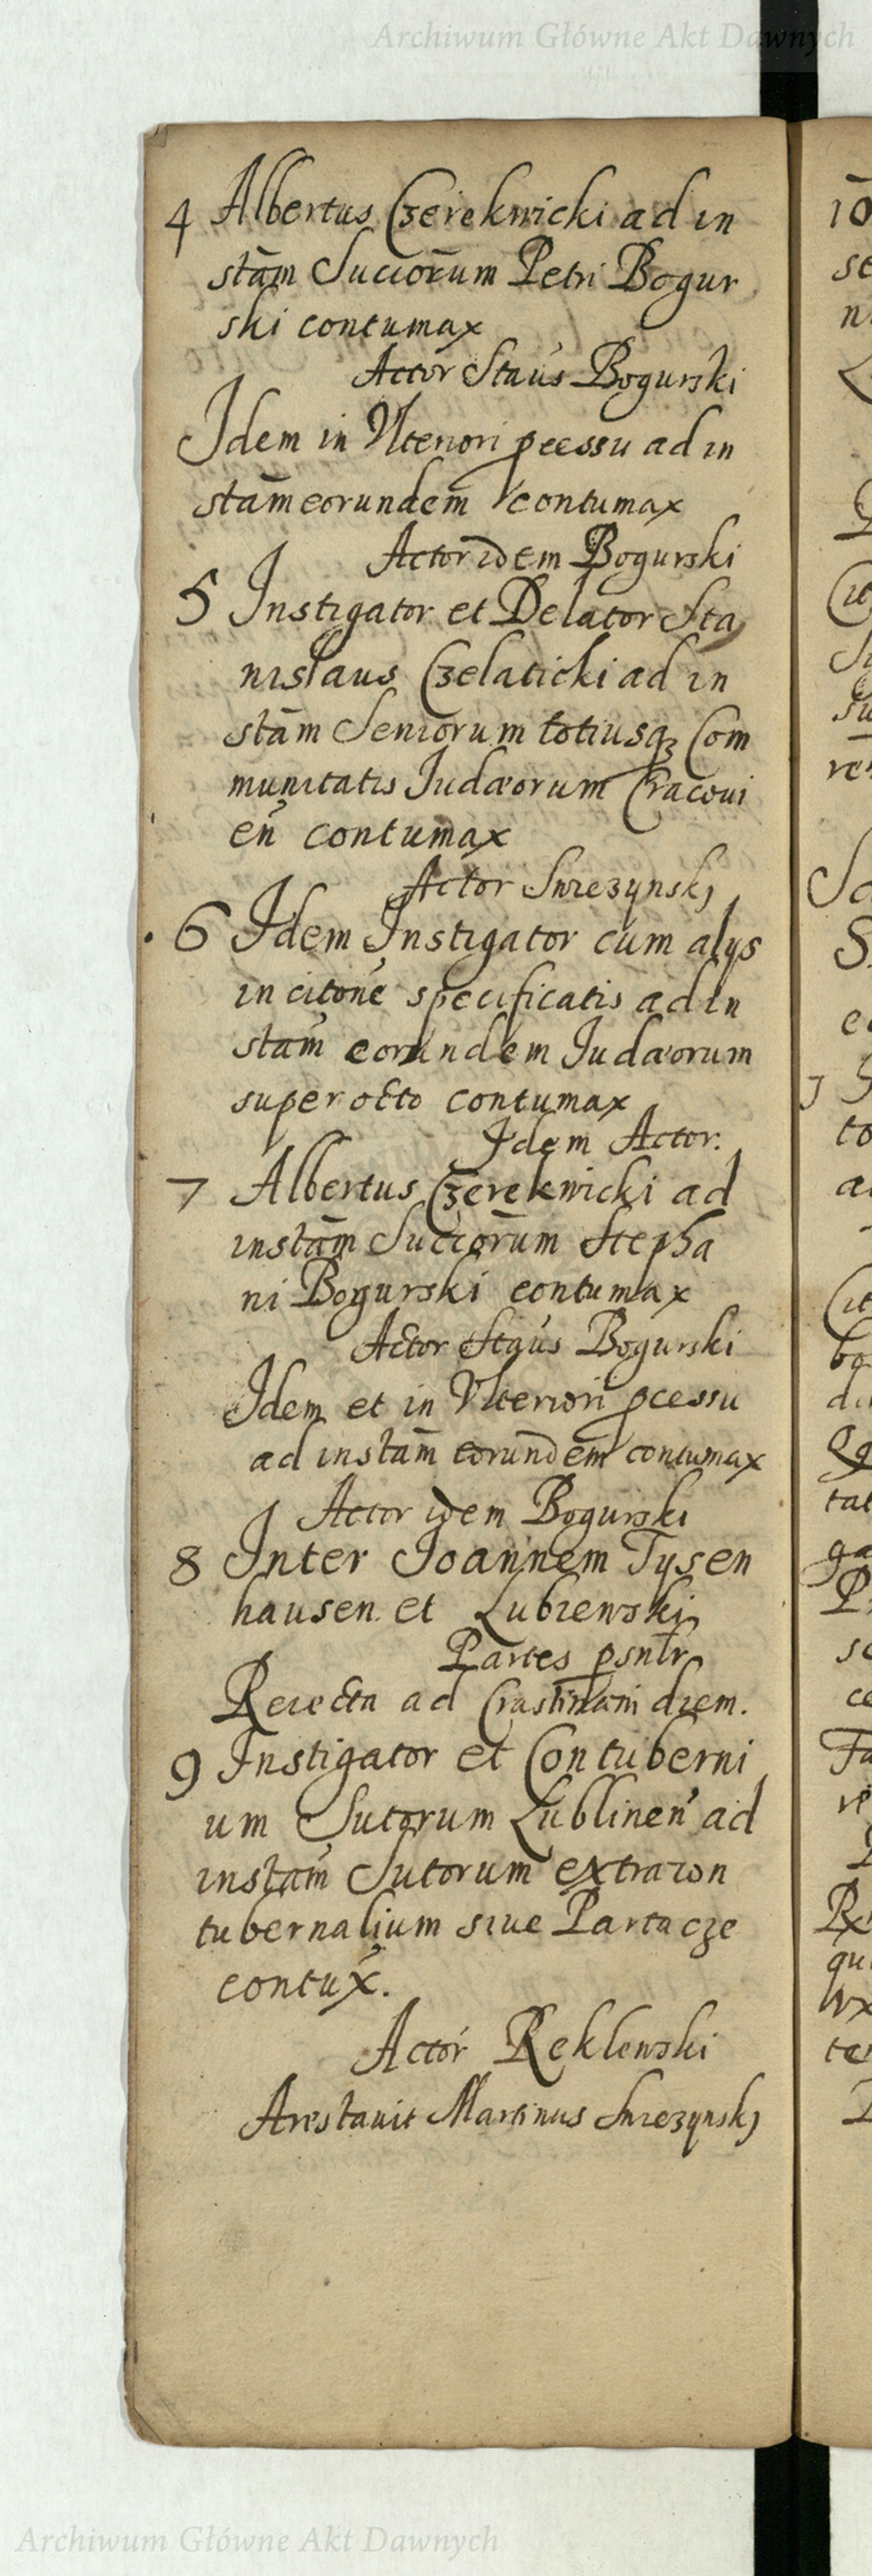 Archiwum Główne Akt Dawnych
4 Albertus Czerekwicki ad in
stām Succorūm Petri Bogur
ski contumax
Actor Staůs Bogurski
Idem in Ulteriori pcessu ad in
stām eorundem contumax
Actor idem Bogurski
5 Instigator et Delator Sta
nislaus Czelaticki ad in
stām Seniorum totiusqȝ Com
munitatis Iudæorum Cracoui
eń contumax
Actor Swiezynskj
6 Idem Instigator cum alys
in citone specificatis ad in
stam̄ eorundem Iudæorum
super octo contumax
Idem Actor.
7 Albertus Czerekwicki ad
instām Succorūm Stepha
ni Bogurski contumax
Actor Staůs Bogurski
Idem et in Ulteriori pcessu
ad instam̄ eorundem contumax
Actor idem Bogurski
8 Inter Ioannem Tysen
hausen et Lubiewski
Partes psntr
Reiecta ad Crastinam diem.
9 Instigator et Contuberni
um Sutorum Lublineń ad
instam̄ Sutorum extracon
tubernalium siue Partacze
contux̃.
Actor Reklewski
Arestauit Martinus Swiezynskj
10
se
n
Cit
su
ret
Sa
S
5
to
a
Cit
bo
di
tat
ga
P
sc
ce
Fa
re
qu
ux
te
Archiwum Główne Akt Dawnych